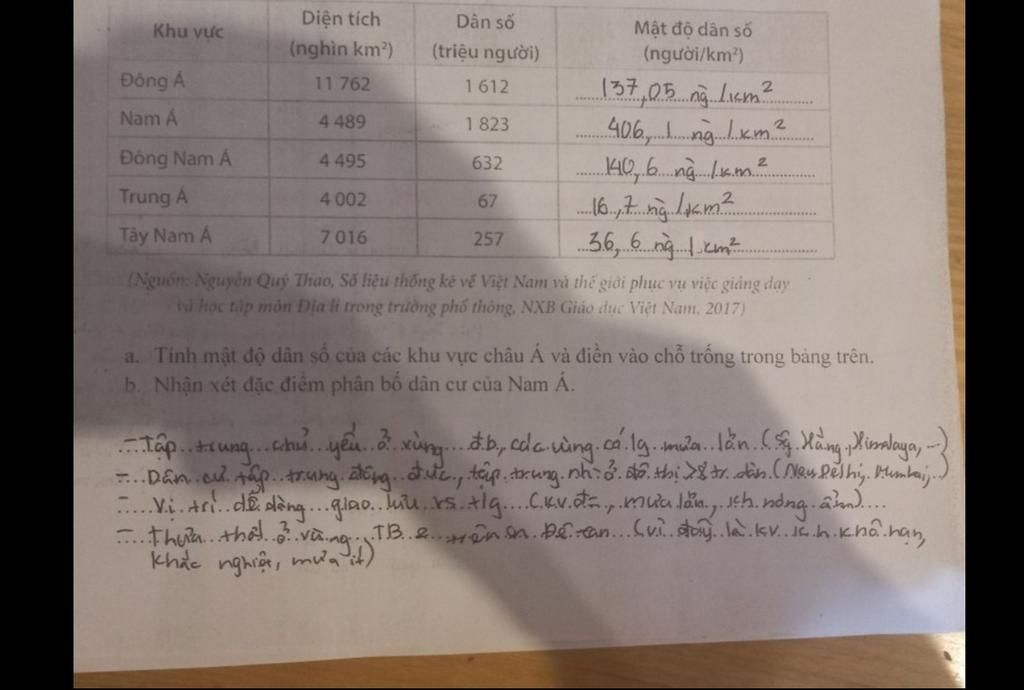 Khu vực Diện tích (nghìn km²) Dân số (triệu người) Mật độ dân số (người/km²)
Đông Á 11 762 1 612 137,05 ng /km²
Nam Á 4 489 1 823 406,1 ng / km²
Đông Nam Á 4 495 632 140,6 ng /km²
Trung Á 4 002 67 16,7 ng /km²
Tây Nam Á 7 016 257 36,6 ng / km²
(Nguồn: Nguyễn Quý Thao, Số liệu thống kê về Việt Nam và thế giới phục vụ việc giảng dạy
và học tập môn Địa lí trong trường phổ thông, NXB Giáo dục Việt Nam, 2017)
a. Tính mật độ dân số của các khu vực châu Á và điền vào chỗ trống trong bảng trên.
b. Nhận xét đặc điểm phân bố dân cư của Nam Á.
- Tập trung chủ yếu ở vùng đ.b, các vùng có lg mưa lớn (sg Hằng, Himalaya, ...)
- Dân cư tập trung đông đức, tập trung nh ở đô thị > 8 tr dân (Niu Delhi, Mumbai, ...)
- Vị trí dễ dàng giao lưu vs tlg (kv đ=, mưa lớn, kh nóng ẩm)
- Thưa thớt ở vùng TB trên sn Đê-can (vì đây là kv kh khô hạn,
khắc nghiệt, mưa ít)